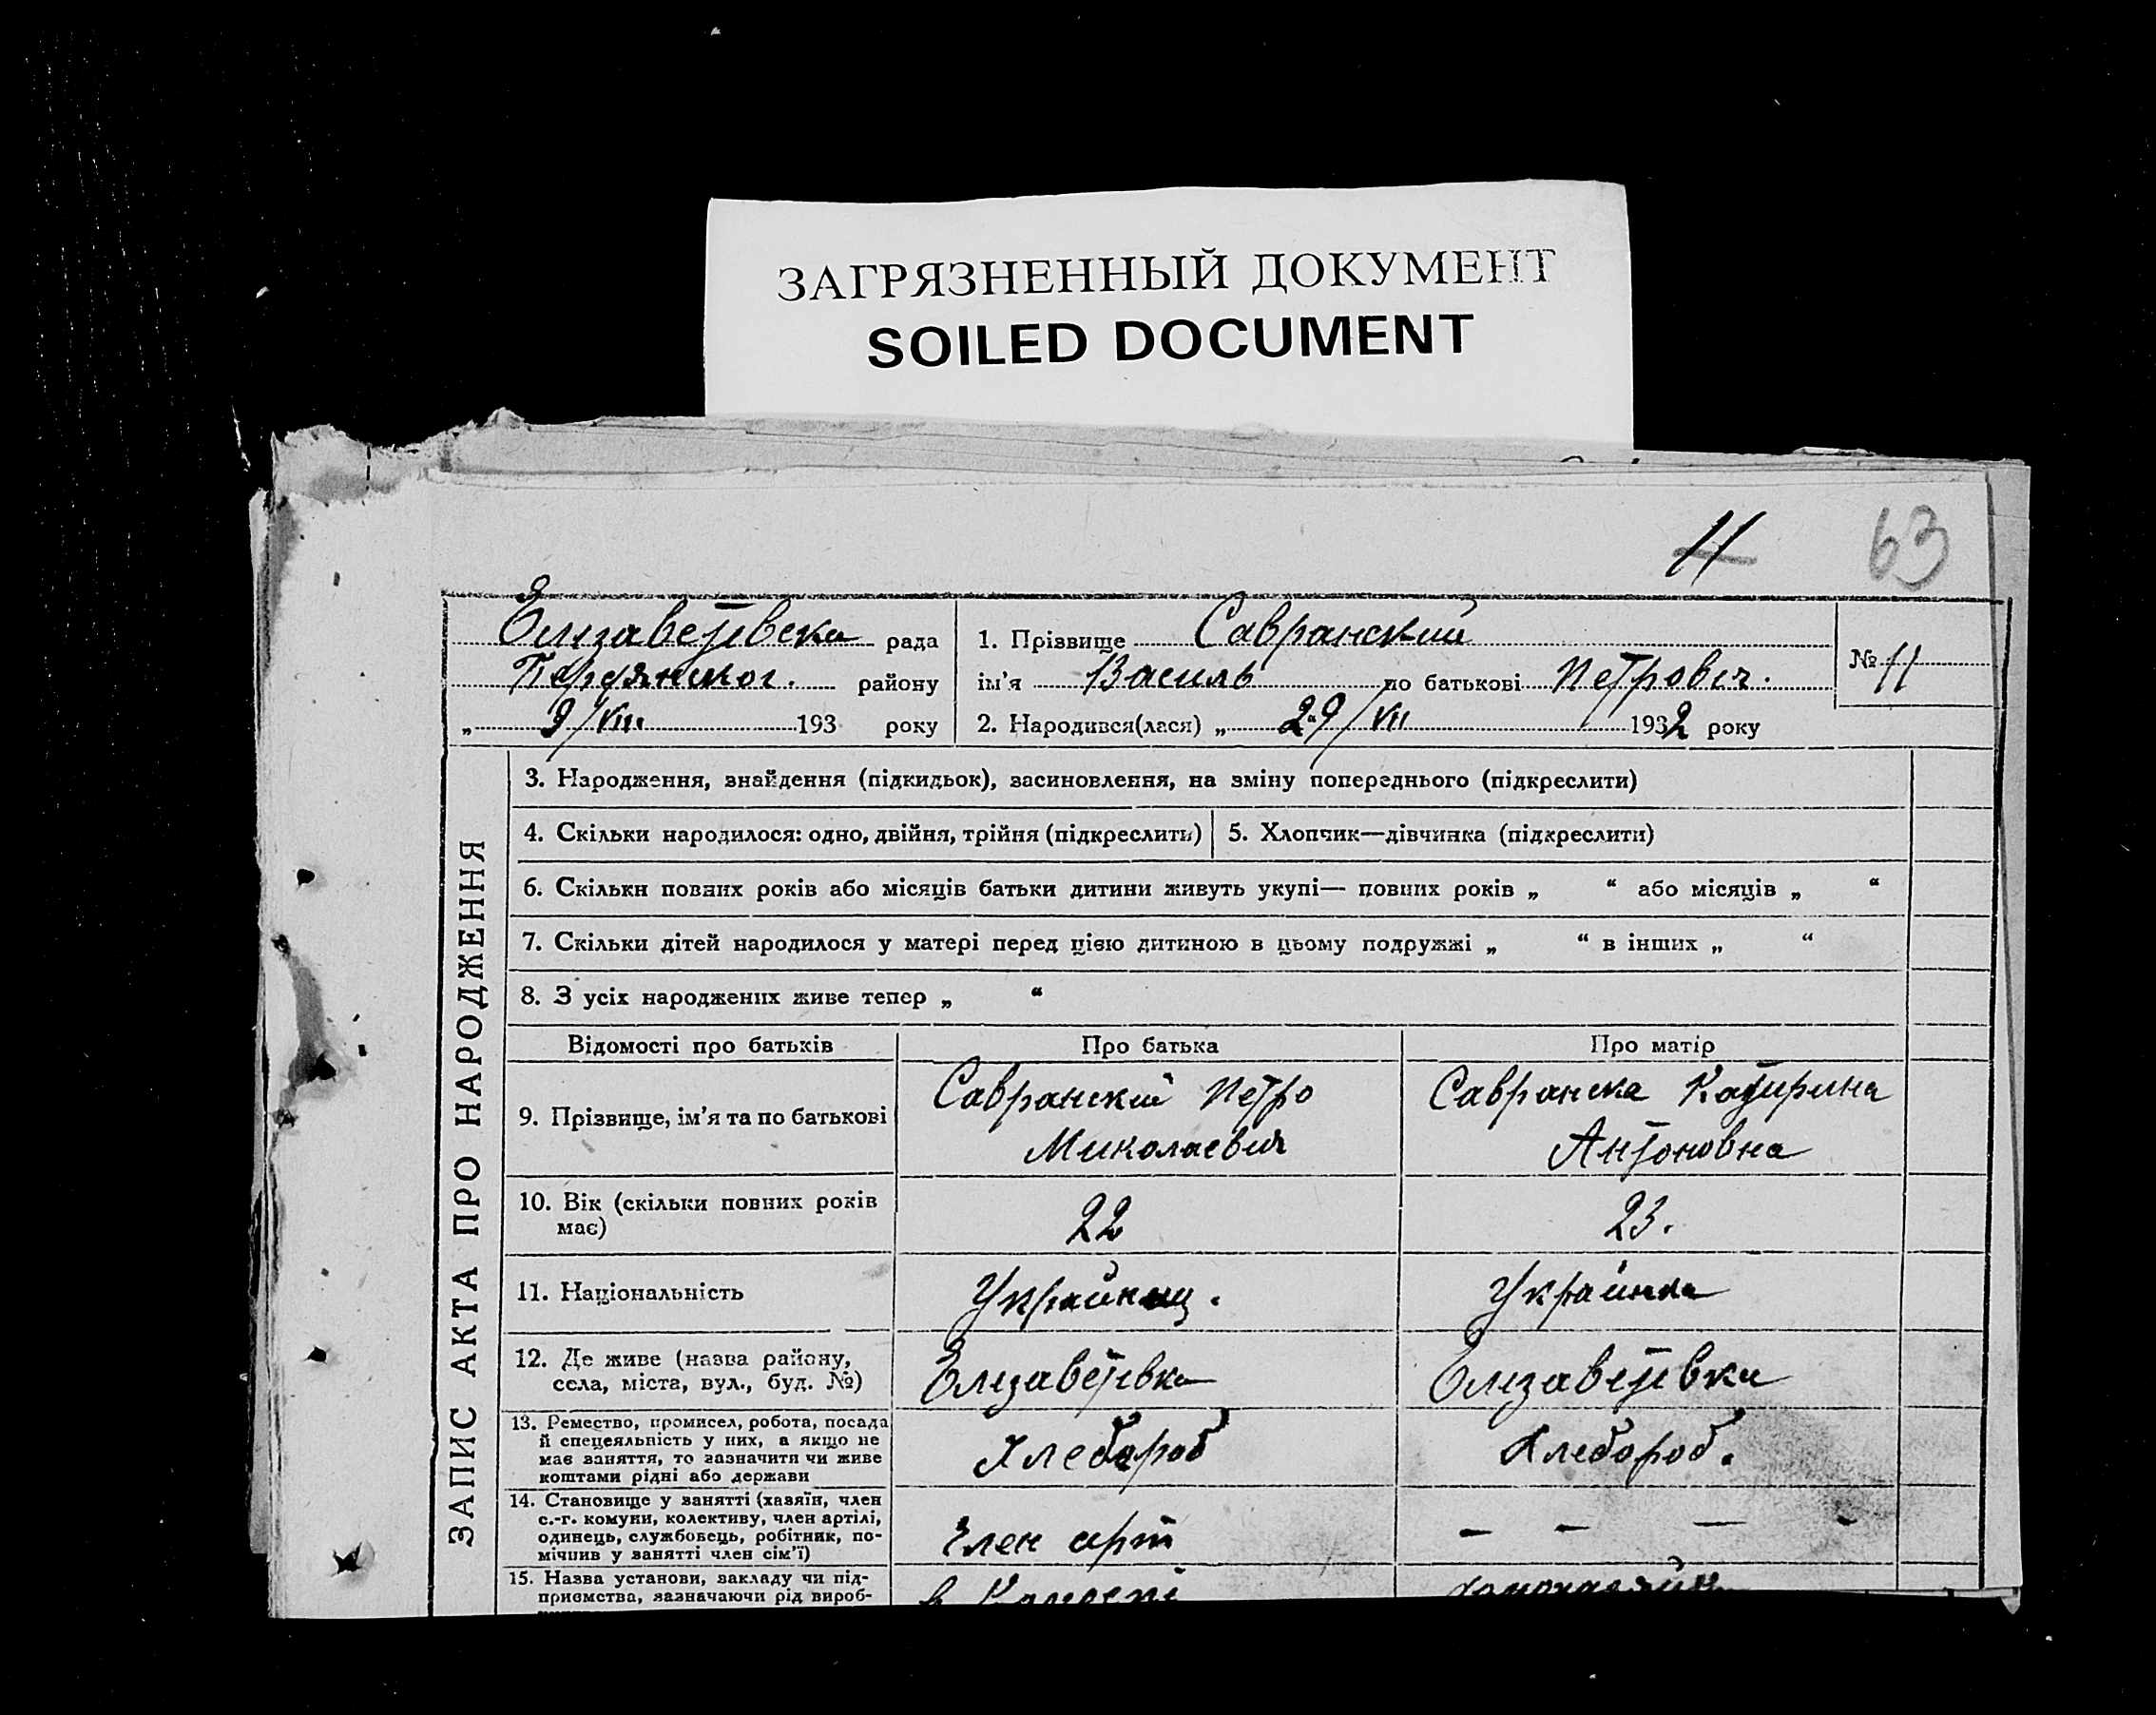 ЗАГРЯЗНЕННЫЙ ДОКУМЕНТ
SOILED DOCUMENT
11 63
Єлизаветевска рада
Бердянског. району
„ 9/VIII 193 року
1. Прізвище Савранский
ім'я Василь по батькові Петрович.
2. Народився(лася) „ 29/VII 1932 року
№ 11
ЗАПИС АКТА ПРО НАРОДЖЕННЯ
3. Народження, знайдення (підкидьок), засиновлення, на зміну попереднього (підкреслити)
4. Скільки народилося: одно, двійня, трійня (підкреслить) 5. Хлопчик—дівчинка (підкреслити)
6. Скільки повних років або місяців батьки дитини живуть укупі— повних років „ “ або місяців „ “
7. Скільки дітей народилося у матері перед цією дитиною в цьому подружжі „ “ в інших „ “
8. З усіх народжених живе тепер „ “
Відомості про батьків Про батька Про матір
9. Прізвище, ім'я та по батькові
Савранский Петро
Миколаевич
Савранска Катирина
Антоновна
10. Вік (скільки повних років
має)
22 23.
11. Національність Украйнец. Украинка
12. Де живе (назва району,
села, міста, вул., буд. №)
Єлизаветевка Єлизаветевка
13. Ремество, промисел, робота, посада
й спецеяльність у них, а якщо не
має заняття, то зазначити чи живе
коштами рідні або держави
Хлебороб Хлебороб.
14. Становище у занятті (хазяїн, член
с.-г. комуни, колективу, член артілі,
одинець, службовець, робітник, по-
мічнив у занятті член сім'ї)
Член арт — — — -
15. Назва установи, закладу чи під-
приємства, зазначаючи рід вироб-